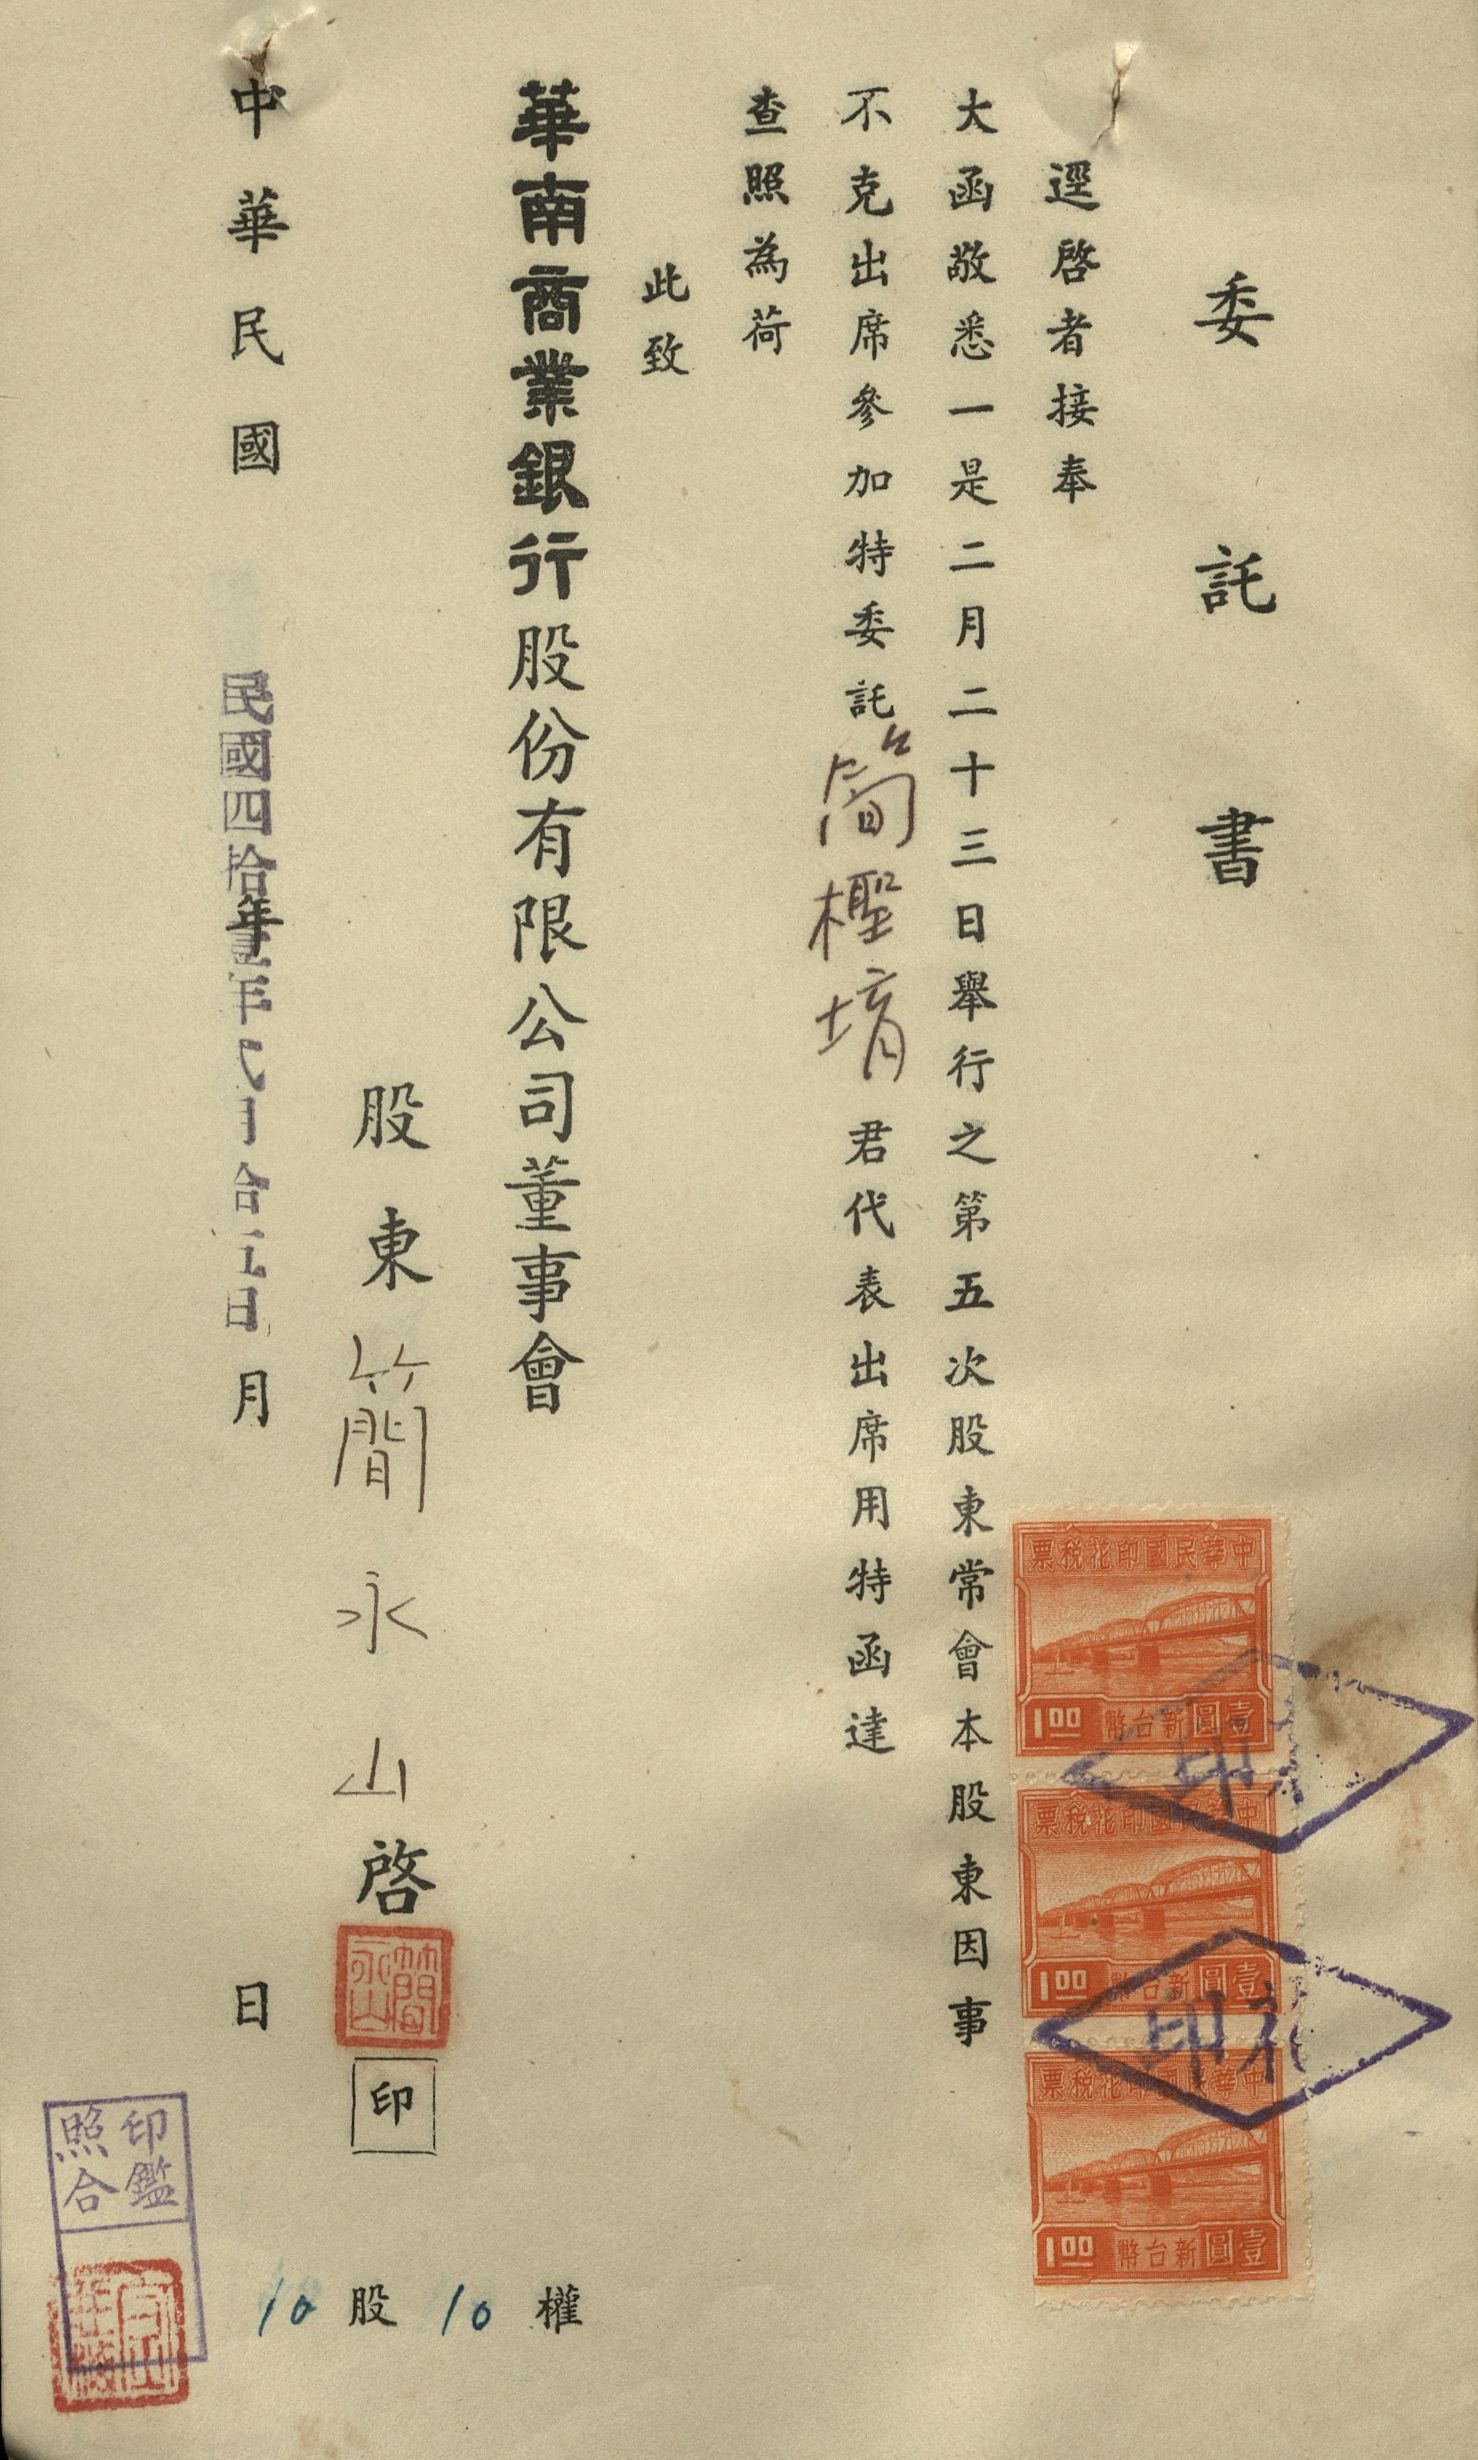 委託書
逕啓者接奉
大函敬悉一是二月二十三日舉行之第五次股東常會本股東因事
不克出席參加特委託簡檉堉君代表出席用特函達
查照為荷
此致
華南商業銀行股份有限公司董事會
股東簡永山啓
簡永山
印
中華民國 年 月 日
民國四拾壹年弍月拾五日
10股10權
印鑑
照合
中華民國印花稅票
壹圓新台幣
1.00
中華民國印花稅票
壹圓新台幣
1.00
中華民國印花稅票
壹圓新台幣
1.00
印花
印花